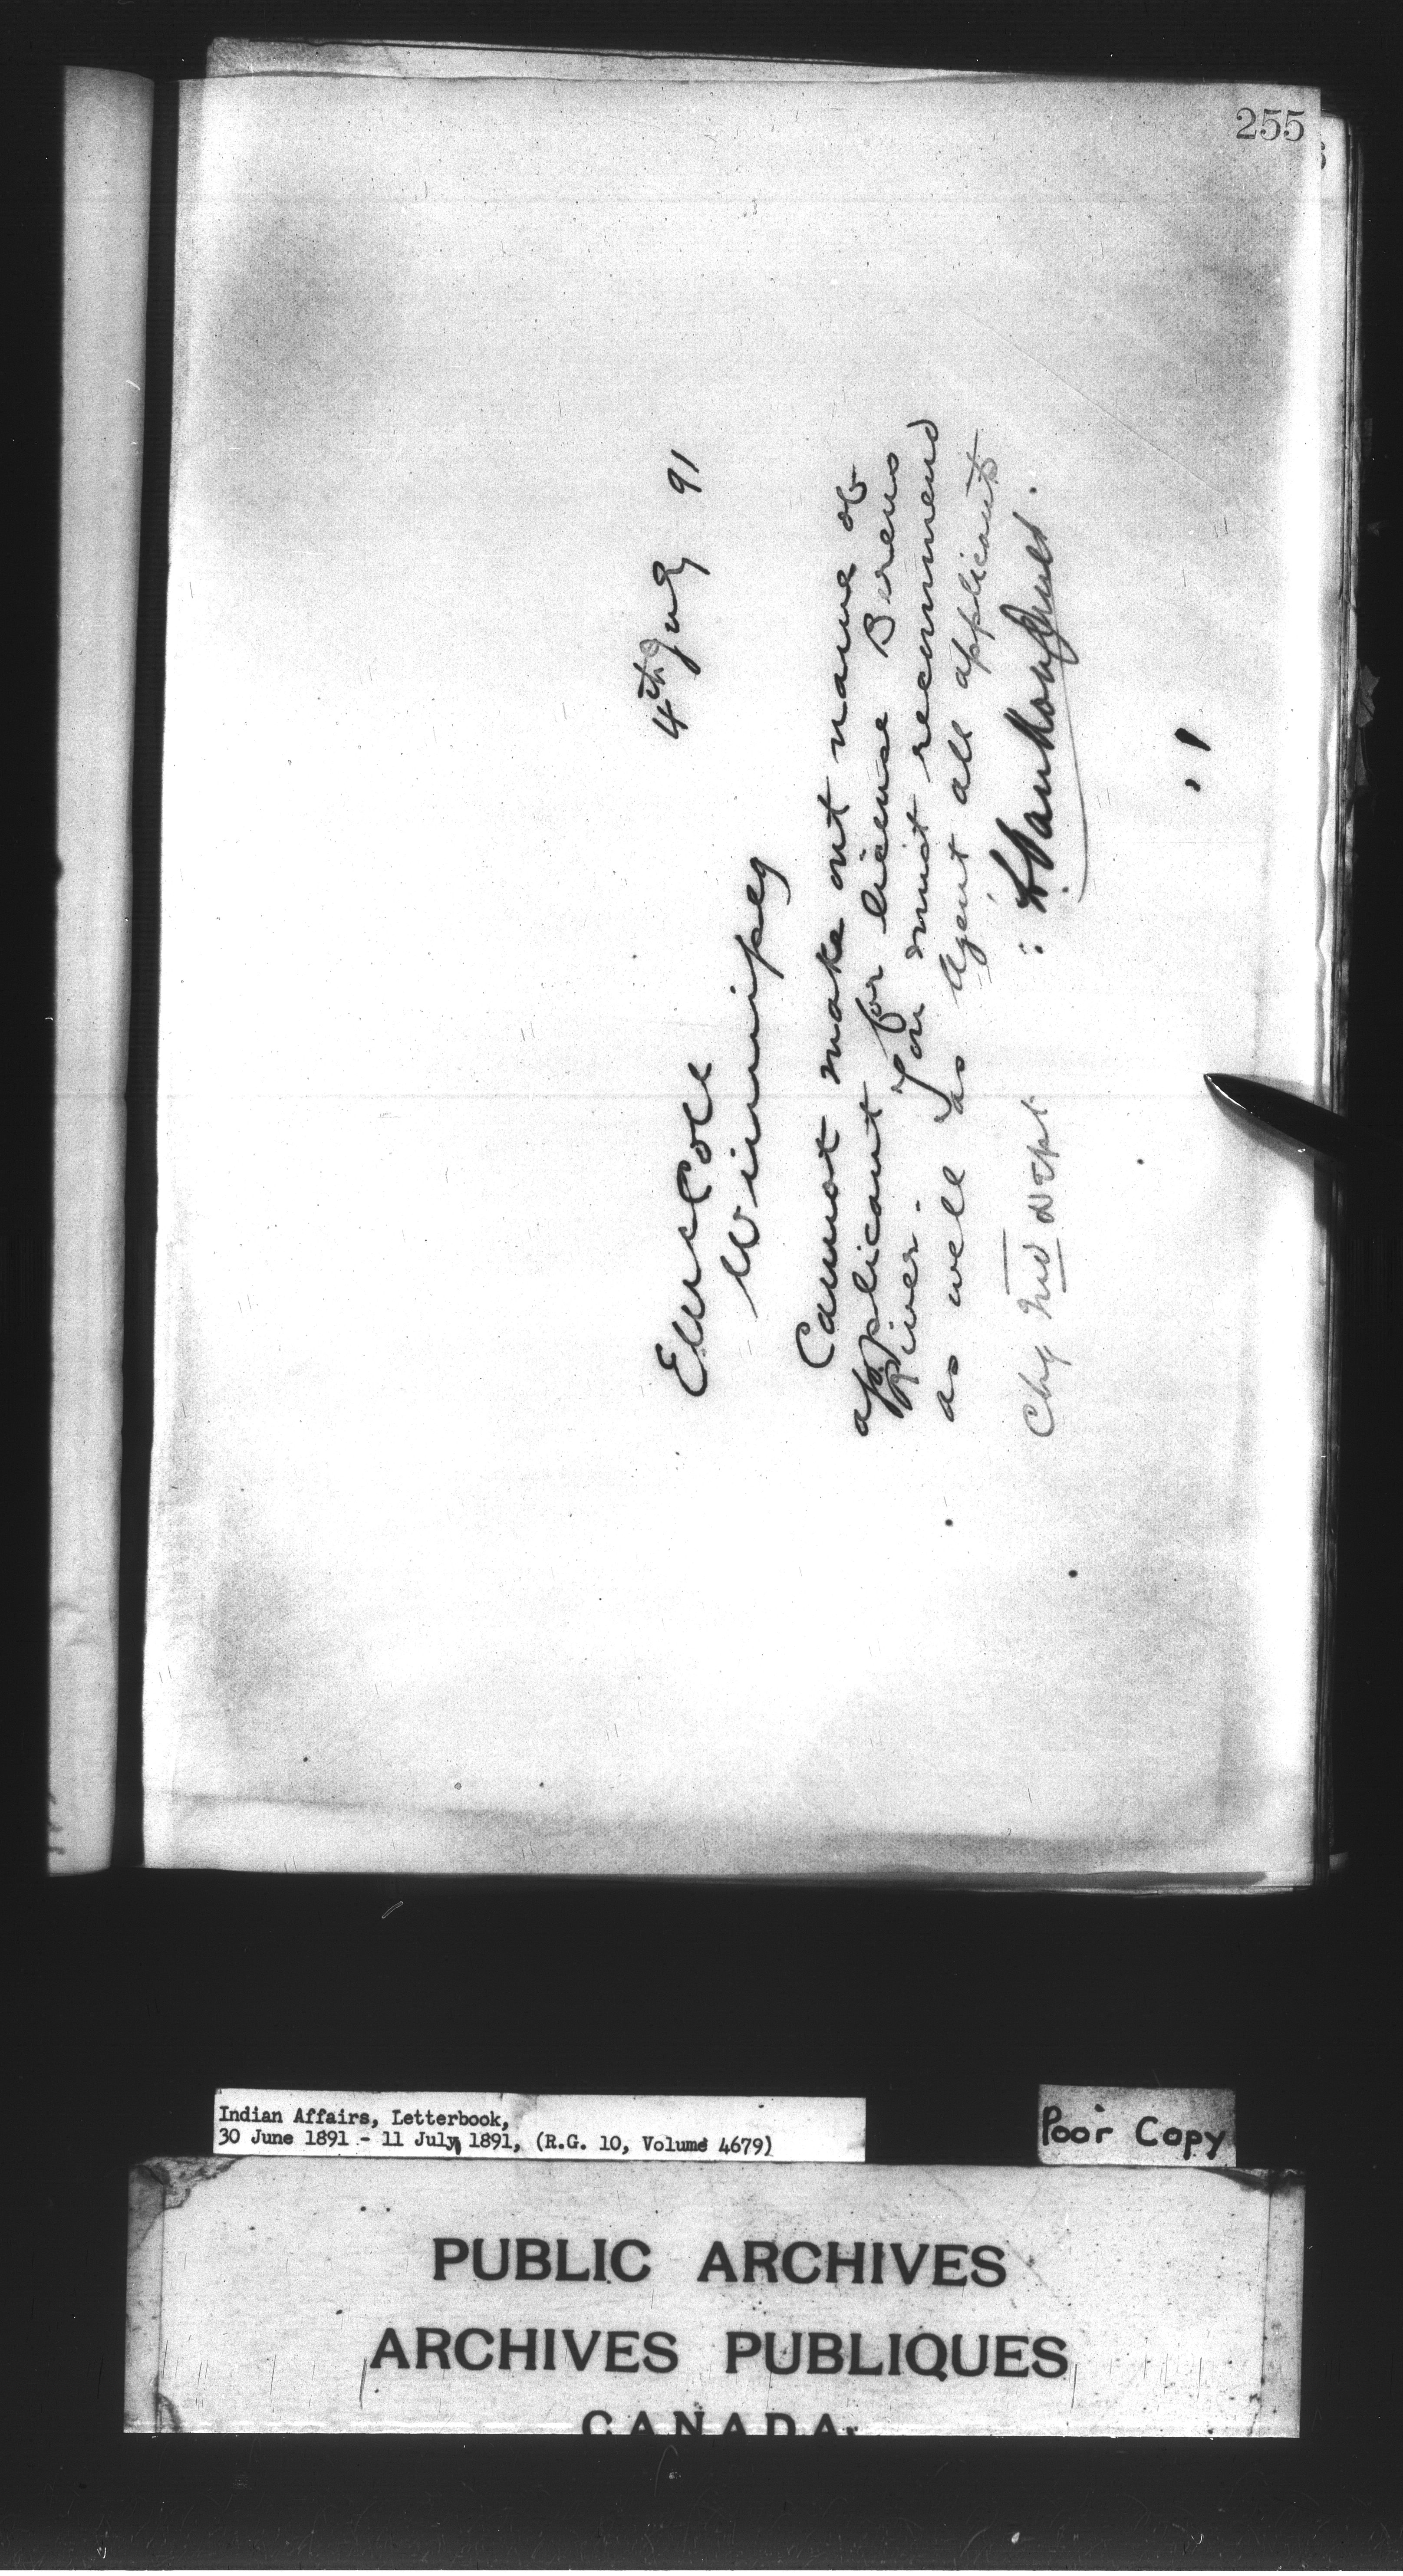 255
4th July 91
E McColl
Winnipeg
Cannot make out name of
applicant for license Berens
River. You must recommend
as well as Agent all applicants
L. Vankoughnet.
Chg Ind Dept
Indian Affairs, Letterbook,
30 June 1891 - 11 July 1891, (R.G. 10, Volume 4679)
Poor Copy
PUBLIC ARCHIVES
ARCHIVES PUBLIQUES
CANADA